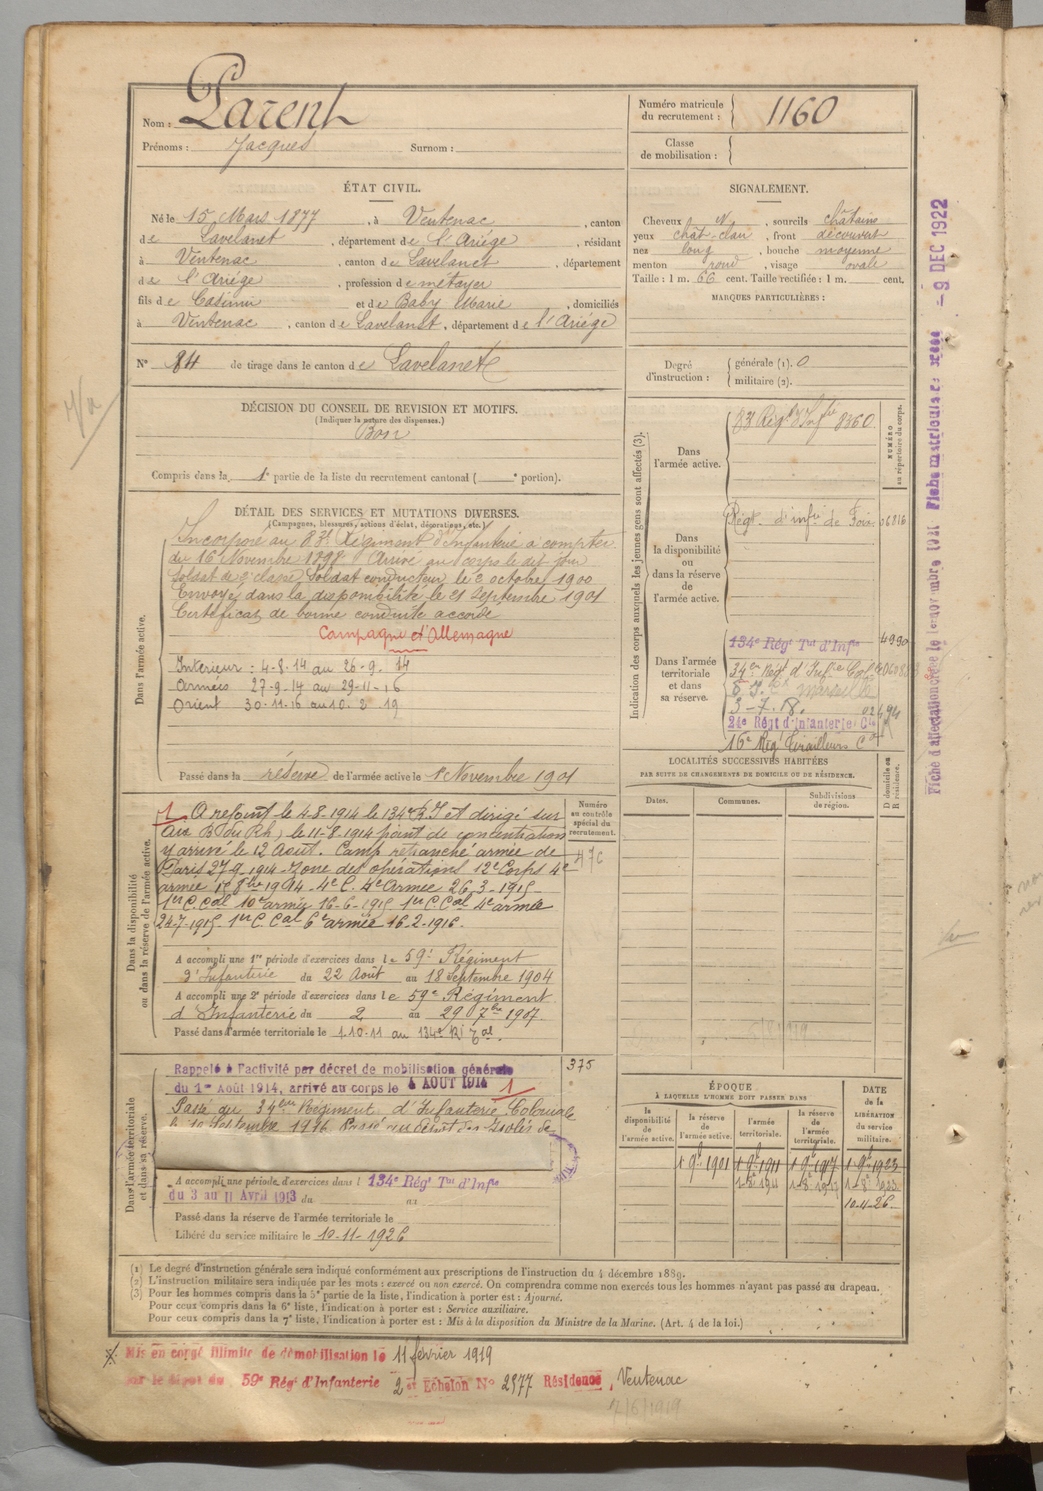 Nom : Parent
Prénoms : Jacques Surnom :
Numéro matricule du recrutement : 1160
Classe de mobilisation :
ÉTAT CIVIL.
Né le 15 Mars 1877, à Ventenac, canton
de Lavelanet, département de l'Ariège, résidant
à Ventenac, canton de Lavelanet, département
de l'Ariège, profession de métayer
fils de Casimir et de Baby Marie, domiciliés
à Ventenac, canton de Lavelanet, département de l'Ariège
N° 84 de tirage dans le canton de Lavelanet
SIGNALEMENT.
Cheveux N, sourcils châtains
yeux chât-clair, front découvert
nez long, bouche moyenne
menton rond, visage ovale
Taille : 1 m. 66 cent. Taille rectifiée : 1 m. cent.
MARQUES PARTICULIÈRES :
Degré d'instruction : générale (1). 0
militaire (2).
DÉCISION DU CONSEIL DE REVISION ET MOTIFS.
(Indiquer la nature des dispenses.)
Bon
Compris dans la 1e partie de la liste du recrutement cantonal ( e portion).
DÉTAIL DES SERVICES ET MUTATIONS DIVERSES.
(Campagnes, blessures, actions d'éclat, décorations, etc.)
Dans l'armée active.
Incorporé au 83e Régiment d'Infanterie à compter
du 16 Novembre 1898 Arrivé au corps le dit jour
Soldat de 2e classe Soldat conducteur le 2 octobre 1900
Envoyé dans la disponibilité le 21 Septembre 1901
Certificat de bonne conduite accordé
Campagne d'Allemagne
Intérieur : 4-8-14 au 26-9-14
Armées 27-9-14 au 29-11-16
Orient 30-11-16 au 10-2-19
Passé dans la réserve de l'armée active le 1 Novembre 1901
Indication des corps auxquels les jeunes gens sont affectés (3).
NUMÉRO au répertoire du corps.
Dans l'armée active.
83 Régt d'Infie 8360
Dans la disponibilité ou dans la réserve de l'armée active.
Régt. d'infie de Foix 06816
Dans l'armée territoriale et dans sa réserve.
134e Régt Tal d'Infie 4990
34e Régt d'Infie Cole
Marseille
3-7-18.
24e Régt d'Infanterie Cle
16e Régt Tirailleurs
LOCALITÉS SUCCESSIVES HABITÉES
PAR SUITE DE CHANGEMENTS DE DOMICILE OU DE RÉSIDENCE.
Dates. Communes. Subdivisions de région. D domicile ou R résidence.
Dans la disponibilité ou dans la réserve de l'armée active.
Numéro au contrôle spécial du recrutement.
1 A rejoint le 4-8-1914 le 134e R.I et dirigé sur
le 11-8-1914 point de concentration
y arrivé le 12 Août. Camp retranché armée de
Paris 27-9-1914 Zone des opérations 12e Corps 4e
armée 1914 4e C. 4e Armée 26-3-1915
1er C. Cal 10e armée 16-6-1915 1er C. Cal 4e armée
24-7-1915 1er C. Cal 6e armée 16-2-1916.
A accompli une 1re période d'exercices dans le 59e Régiment
d'Infanterie du 22 Août au 18 Septembre 1904
A accompli une 2e période d'exercices dans le 59e Régiment
d'Infanterie du 2 au 29 7bre 1907
Passé dans l'armée territoriale le 1.10-11 au 134e RI Tal.
Dans l'armée territoriale et dans sa réserve.
Rappelé à l'activité par décret de mobilisation générale
du 1er Août 1914, arrivé au corps le 4 AOUT 1914 1
375
Passé au 34eme Régiment d'Infanterie Coloniale
A accompli une période d'exercices dans l 134e Régt Tal d'Infie
du 3 au 11 Avril 1913 du au
Passé dans la réserve de l'armée territoriale le
Libéré du service militaire le 10-11-1926
ÉPOQUE
À LAQUELLE L'HOMME DOIT PASSER DANS
la disponibilité de l'armée active. la réserve de l'armée active. l'armée territoriale. la réserve de l'armée territoriale. DATE de la LIBÉRATION du service militaire.
1 9bre 1901 1 9bre 1911 1 9bre 1917 1 9bre 1923
10-4-26-
(1) Le degré d'instruction générale sera indiqué conformément aux prescriptions de l'instruction du 4 décembre 1889.
(2) L'instruction militaire sera indiquée par les mots : exercé ou non exercé. On comprendra comme non exercés tous les hommes n'ayant pas passé au drapeau.
(3) Pour les hommes compris dans la 5e partie de la liste, l'indication à porter est : Ajourné.
Pour ceux compris dans la 6e liste, l'indication à porter est : Service auxiliaire.
Pour ceux compris dans la 7e liste, l'indication à porter est : Mis à la disposition du Ministre de la Marine. (Art. 4 de la loi.)
Mis en congé illimité de démobilisation le 11 février 1919
sur le dépôt du 59e Régt d'Infanterie 2 e Echelon N° 2977 Résidence, Ventenac
7/6/1919
- 9 DEC 1922